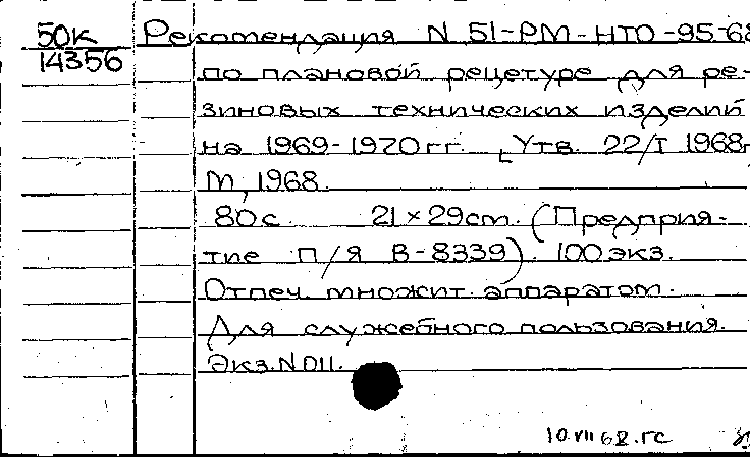 50К
14356
Рекомендация N 51-РМ-НТО-95-68
по плановой рецетуре для ре-
зиновых технических изделий
на 1969-1970гг. [Утв. 22/I 1968г
М, 1968.
80с. 21×29cm. (Предприя-
тие п/я В-8339). 100экз.
Отпеч. множит. аппаратом.
Для служебного пользования.
Экз. N 011.
10.VII 68. ГС